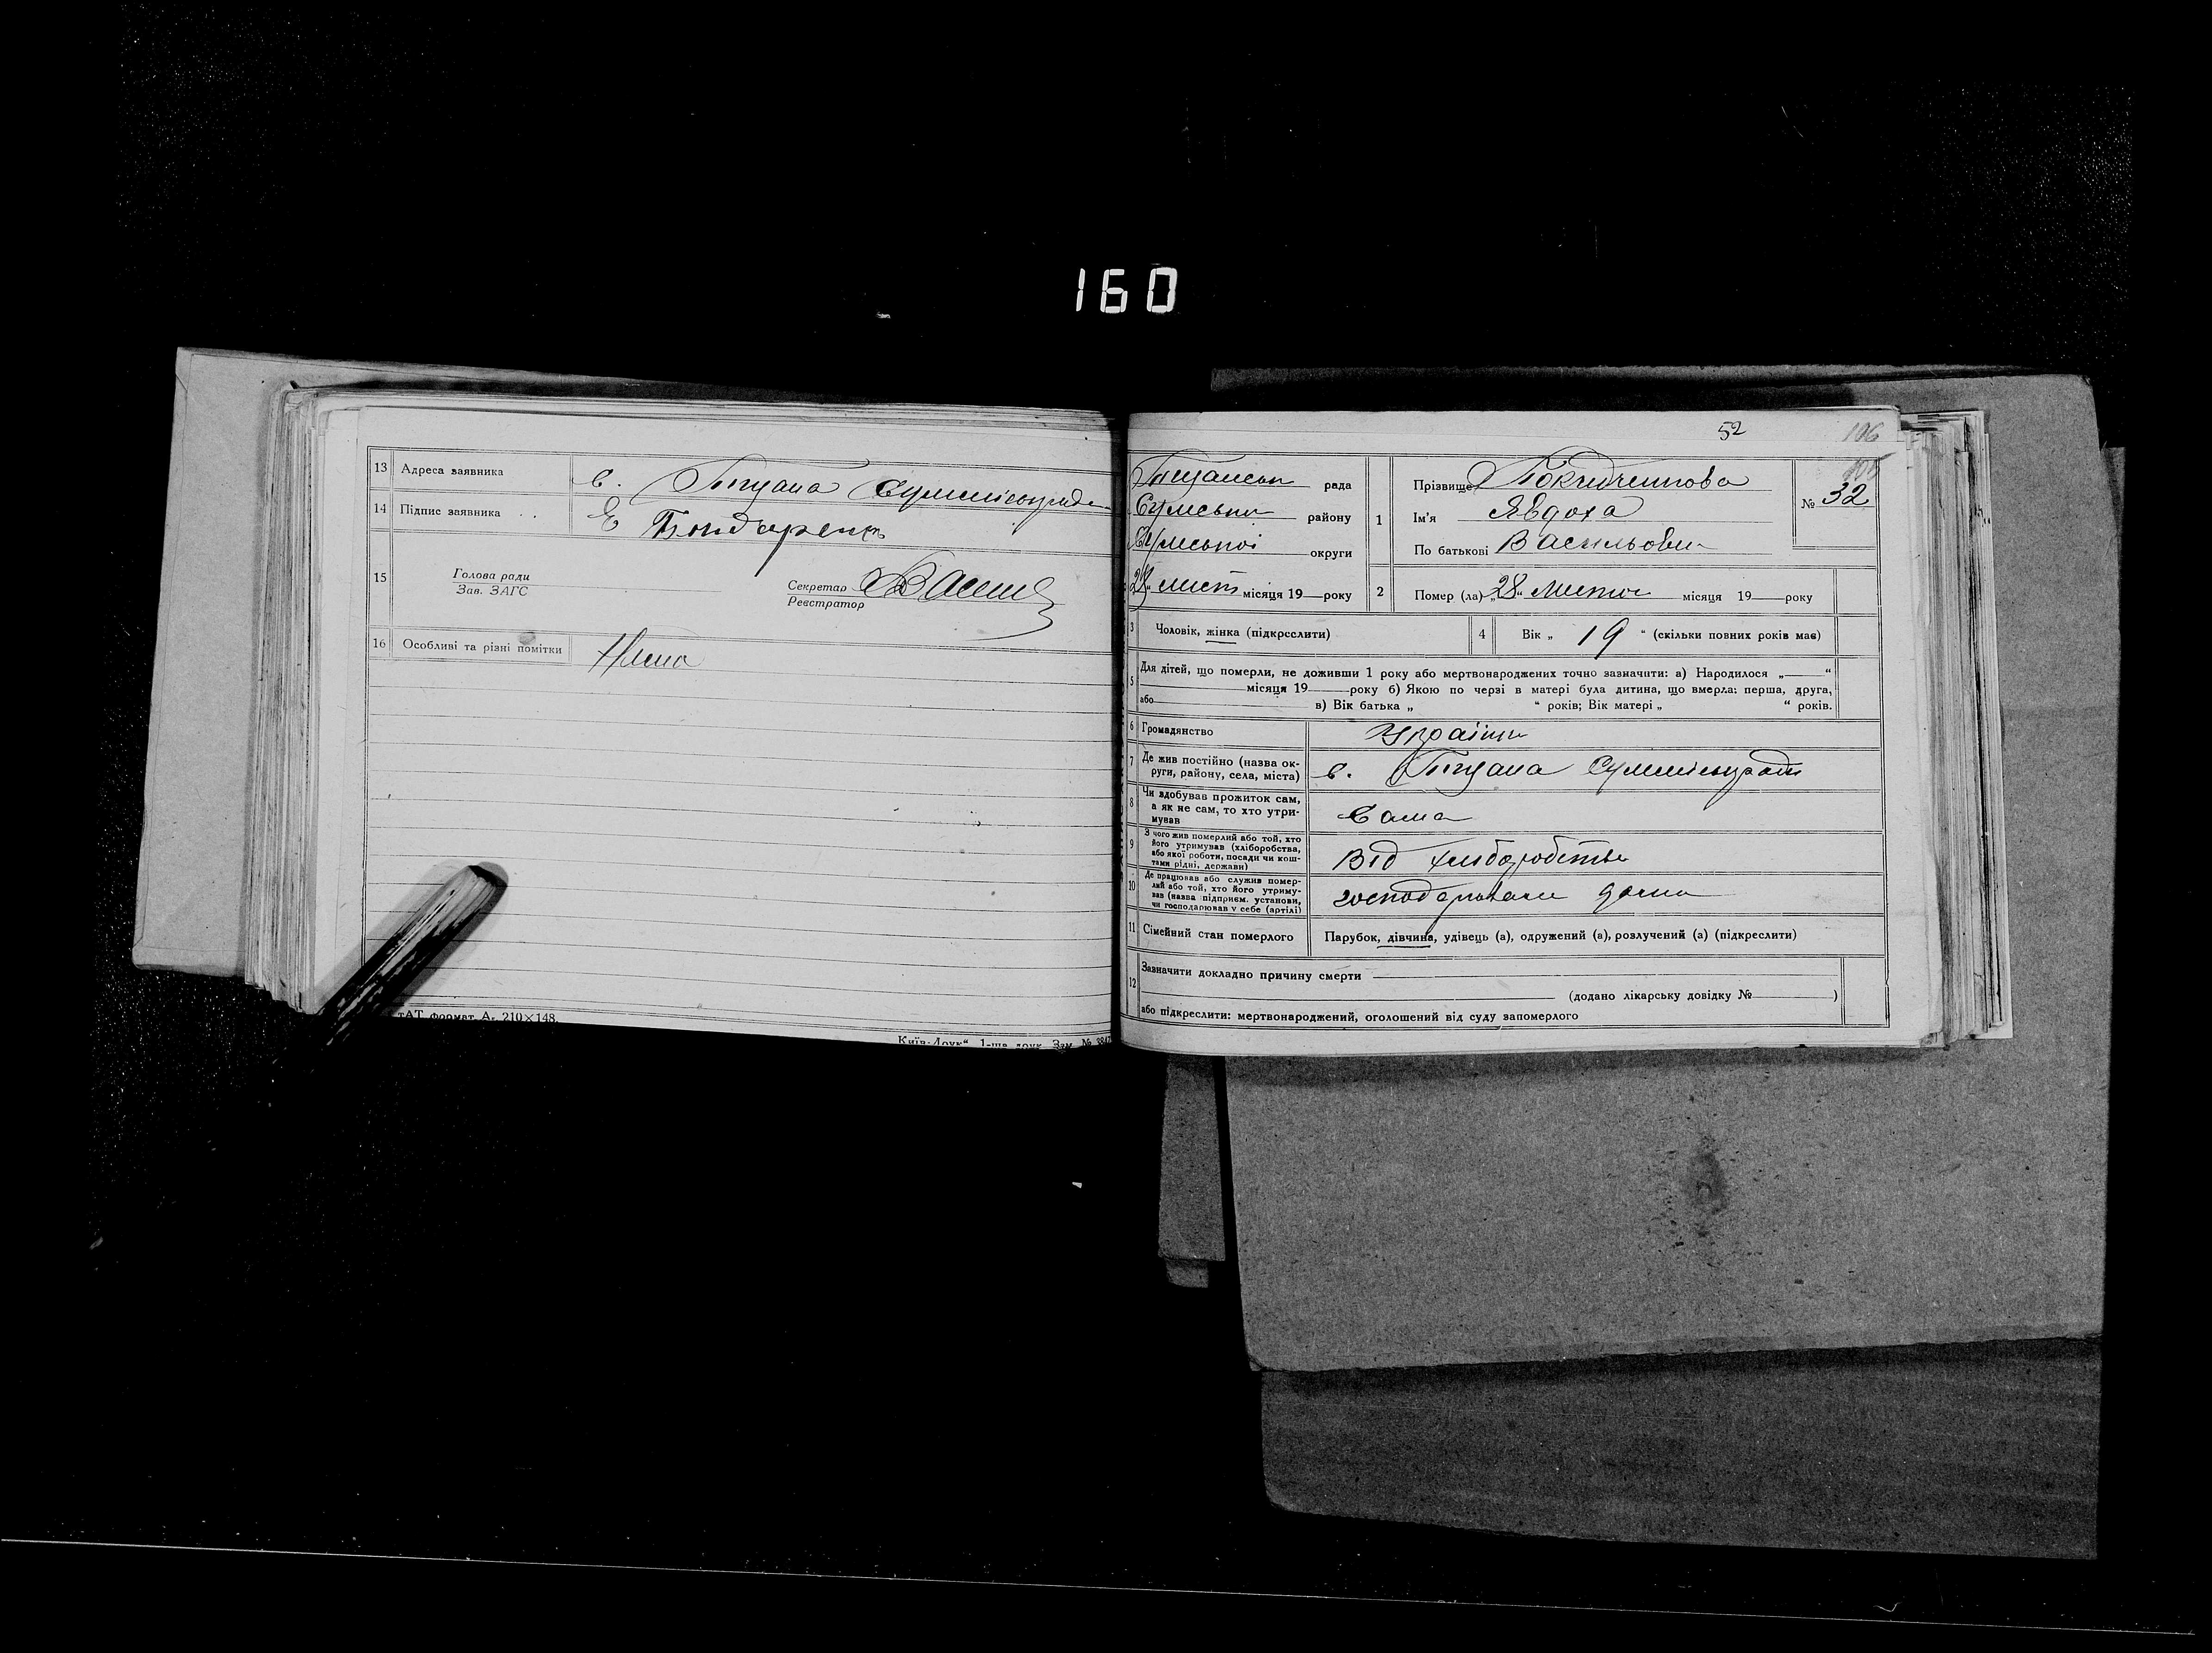 160
13 Адреса заявника с. Піщана Сумміськради
14 Підпис заявника . . Е Бондаренко
15 Голова ради
Зав. ЗАГС
Секретар
Реєстратор
16 Особливі та різні помітки Нема
тАТ формат. А₅ 210×148.
Київ-Друк“ 1-ша друк. Зам. №
52 106
рада
Сумськи району
Сумської округи
28 „ лист місяця 19 — року
1 Прізвище
№ 32
Ім'я Явдоха
По батькові Васильовн
2 Помер (ла) „28“ Лютого місяця 19 — року
3 Чоловік, жінка (підкреслити)
4 Вік „ 19 “ (скільки повних років має)
5 Для дітей, що померли, не доживши 1 року або мертвонароджених точно зазначити: а) Народилося „ — “
місяця 19 — року б) Якою по черзі в матері була дитина, що вмерла: перша, друга,
або в) Вік батька „ “ років; Вік матері „ “ років.
6 Громадянство Україн
7 Де жив постійно (назва ок-
руги, району, села, міста) с. Піщана Сумміськради
8 Чи здобував прожиток сам,
а як не сам, то хто утри-
мував Сама
9 З чого жив померлий або той, хто
його утримував (хліборобства,
або якої роботи, посади чи кош-
тами рідні, держави) Від хліборобства
10 Де працював або служив помер-
лий або той, хто його утриму-
вав (назва підприєм. установи,
чи господарював у себе (артілі) господарювала дома
11 Сімейний стан померлого Парубок, дівчина, удівець (а), одружений (а), розлучений (а) (підкреслити)
12 Зазначити докладно причину смерти
(додано лікарську довідку № — )
або підкреслити: мертвонароджений, оголошений від суду запомерлого